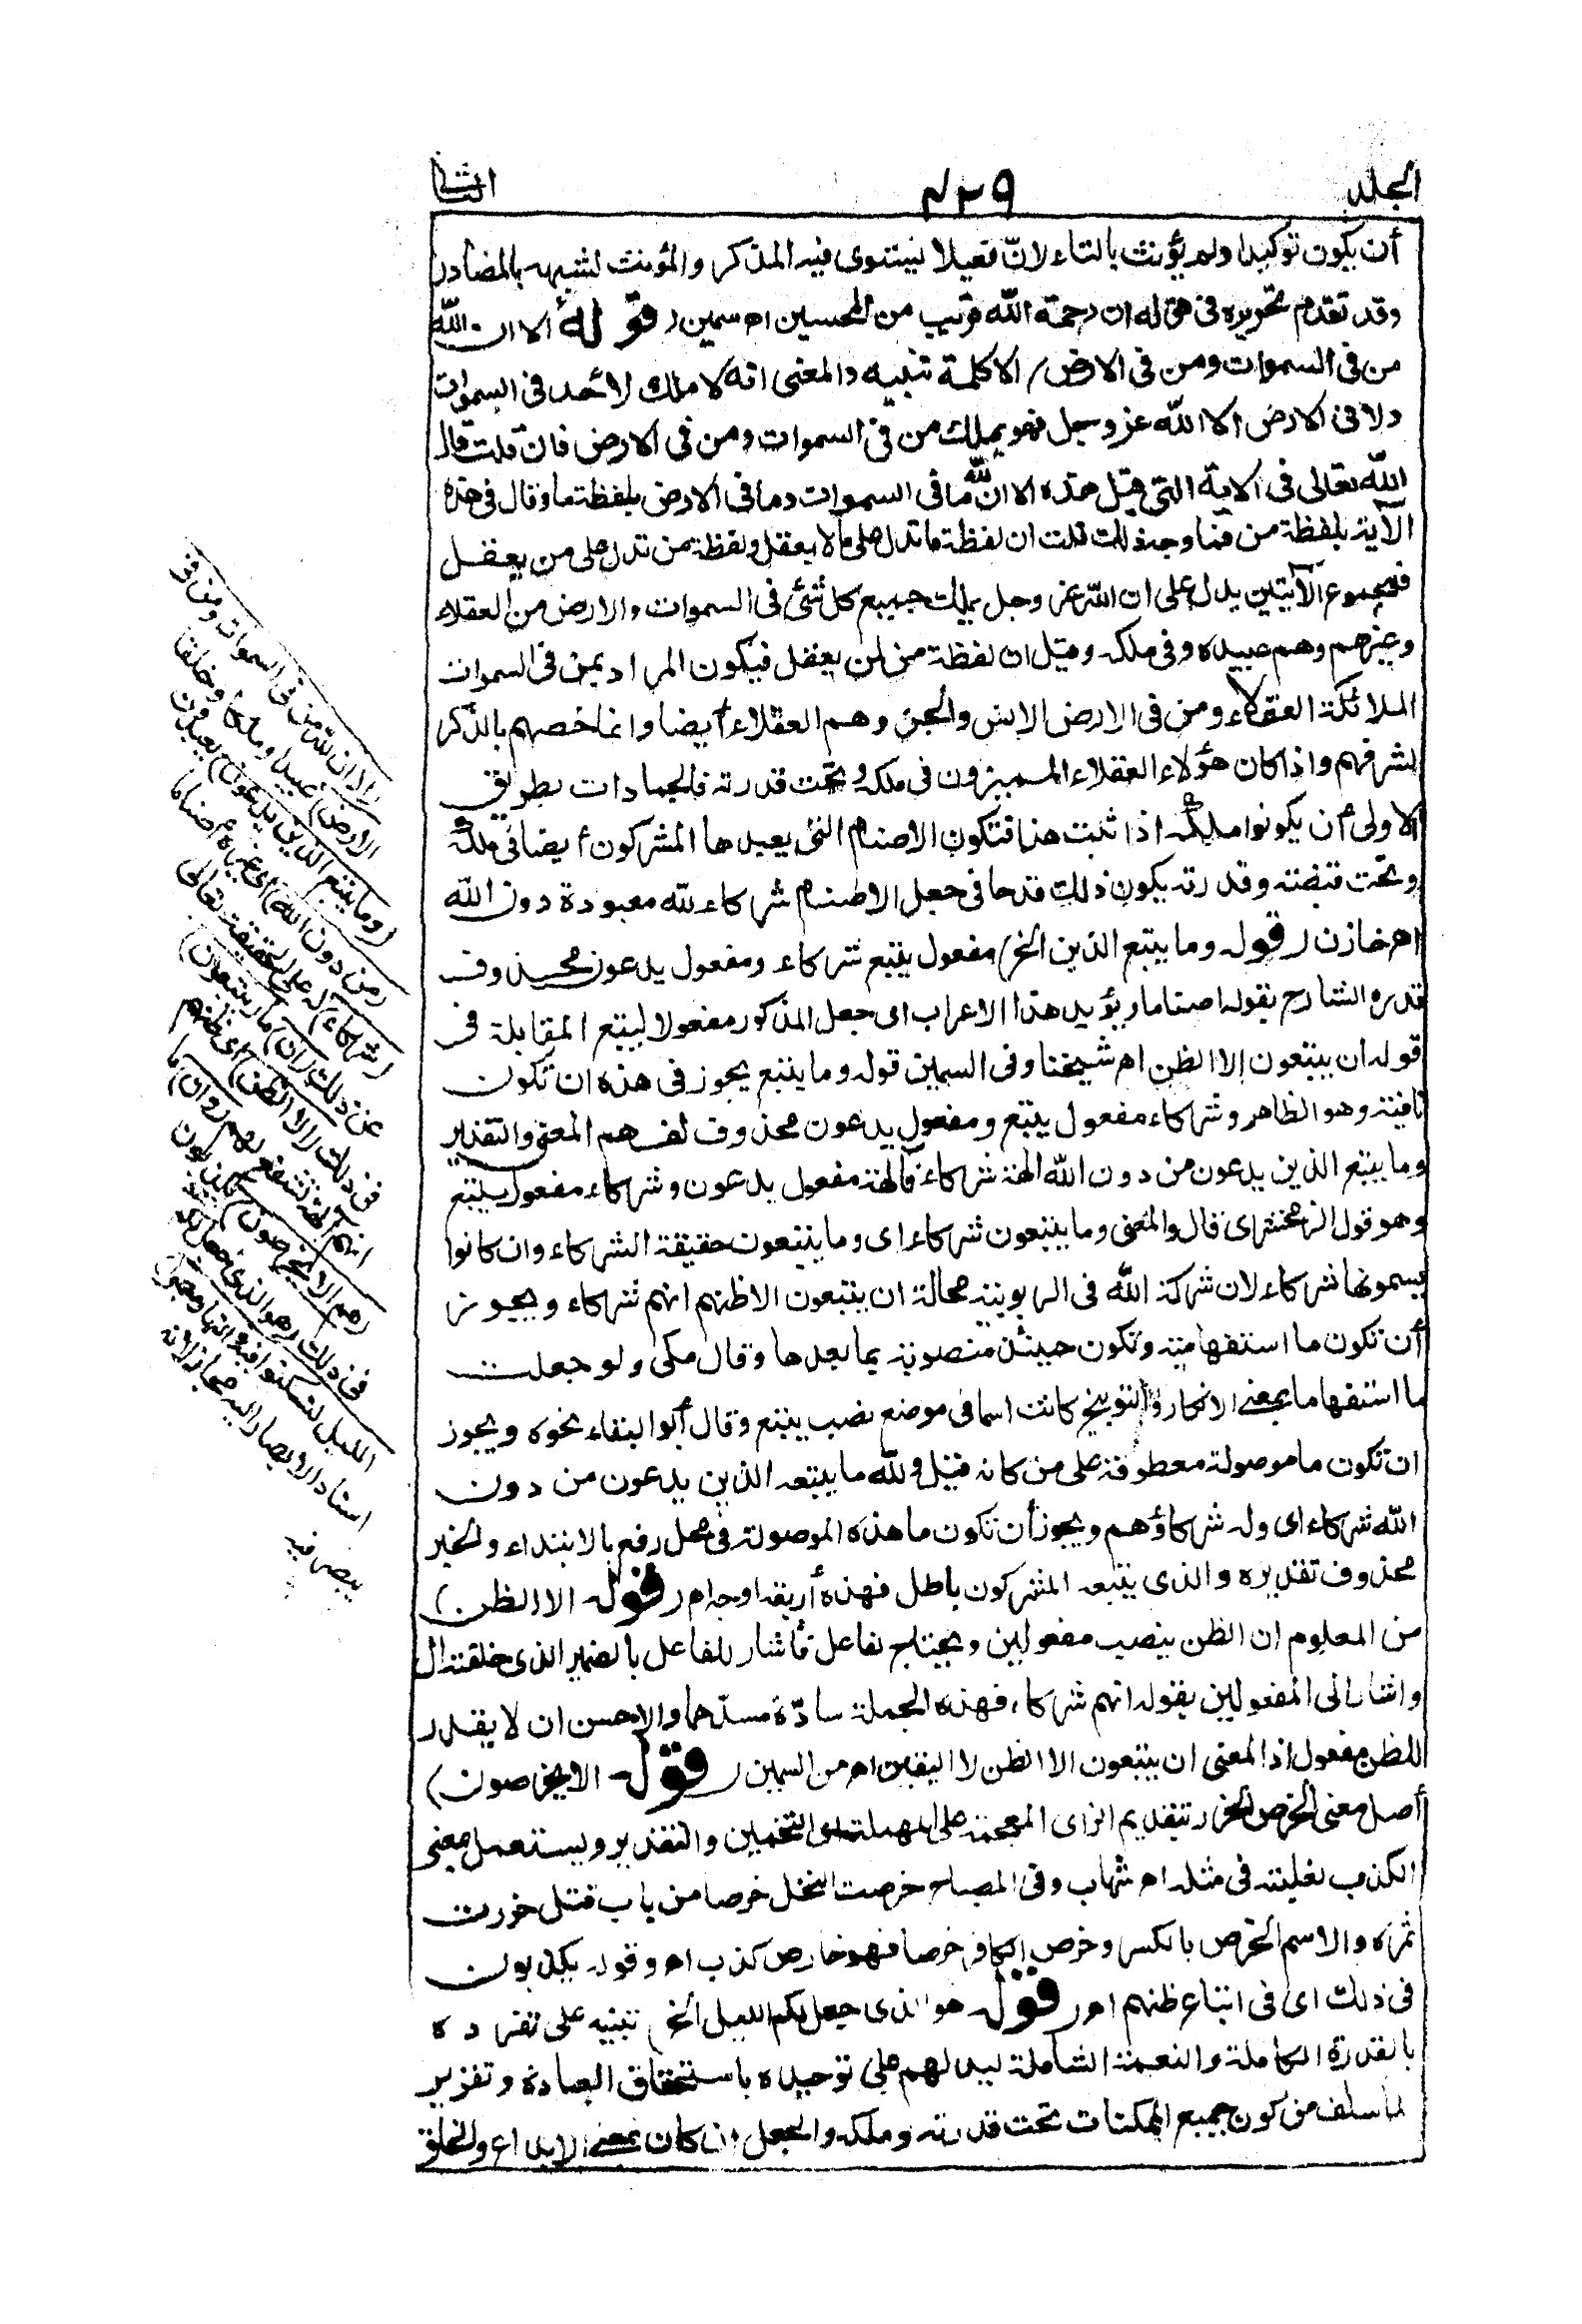 الجلد ٤٢٩ الثانى
أن يكون توكيدا ولم يؤنث بالتاء لانّ فعيلا يستوى فيه المذكر والمؤنث لشبهه بالمصادر
وقد تقدم تحريره فى قوله ان رحمة الله قريب من المحسين اه سمين ( قوله ألا ان لله
من فى السموات ومن فى الارض ) الا كلمة تنبيه والمعنى انه لا ملك لأحد فى السموات
ولا فى الارض الا الله عز وجل فهو يملك من فى السموات ومن فى الارض فان قلت قال
الله تعالى فى الاية التى قبل هذه الا ان لله ما فى السموات وما فى الارض بلفظة ما وقال فى هذه
الآية بلفظة من فما وجه ذلك قلت ان لفظة ما تدل على ما لا يعقل ولفظة من تدل على من يعقل
فمجموع الآيتين يدل على ان الله عز وجل يملك جميع كل شئ فى السموات والارض من العقلاء
وغيرهم وهم عبيده وفى ملكه وقيل ان لفظة من لمن يعقل فيكون المراد بمن فى السموات
الملائكة العقلاء ومن فى الارض الانس والجن وهم العقلاء أيضا وانما خصهم بالذكر
لشرفهم واذا كان هؤلاء العقلاء المميزون فى ملكه وتحت قدرته فالجمادات بطريق
الاولى أن يكونوا ملكه اذا ثبت هذا فتكون الاصنام التى يعبدها المشركون أيضا فى ملكه
وتحت قبضته وقدرته يكون ذلك قدحا فى جعل الاصنام شركاء لله معبودة دون الله
اه خازن ( قوله وما يتبع الذين الخ ) مفعول يتبع شركاء ومفعول يدعون محذوف
قدره الشارح بقوله اصناما ويؤيد هذا الاعراب اى جعل المذكور مفعولا ليتبع المقابلة فى
قوله ان يتبعون إلا الظن اه شيخنا وفى السمين قوله وما يتبع يجوز فى هذه ان تكون
نافية وهو الظاهر وشركاء مفعول يتبع ومفعول يدعون محذوف لفهم المعنى والتقدير
وما يتبع الذين يدعون من دون الله الهة شركاء فآلهة مفعول يدعون وشركاء مفعول يتبع
وهو قول الزمخشرى قال والمعنى وما يتبعون شركاء اى وما يتبعون حقيقة الشركاء وان كانوا
يسمونها شركاء لان شركة الله فى الربوبية محالة ان يتبعون الا ظنهم انهم شركاء ويجوز
أن تكون ما استفهامية وتكون حينئذ منصوبة بما بعدها وقال مكى ولو جعلت
ما استفهاما بمعنى الانكار والتوبيخ كانت اسما فى موضع نصب بيتبع وقال أبو البقاء نحوه ويجوز
ان تكون ما موصولة معطوفة على من كانه قيل ولله ما يتبعه الذين يدعون من دون
الله شركاء اى وله شركاؤهم ويجوز أن تكون ما هذه الموصولة فى محل رفع بالابتداء والخبر
محذوف تقديره والذى يتبعه المشركون باطل فهذه أربعة اوجه اه ( قوله الا الظن )
من المعلوم ان الظن ينصب مفعولين ويحتاج لفاعل فأشار للفاعل بالضمير الذى خلفته ال
واشار الى المفعولين بقوله انهم شركاء فهذه الجملة سادّة مسدهما والاحسن ان لا يقدر
للظن مفعول اذ المعنى ان يتبعون الا الظن لا اليقين اه من السمين ( قوله الا يخرصون )
أصل معنى الخرص الحزر بتقديم الزاى المعجمة على المهملة اى التخمين والتقدير ويستعمل بمعنى
الكذب لغلبته فى مثله اه شهاب وفى المصباح خرصت النخل خرصا من باب قتل حزرت
ثمره والاسم الخرص بالكسر وخرص الكافر خرصا فهو خارص كذب اه وقوله يكذبون
فى ذلك اى فى اتباع ظنهم اه ( قوله هو الذى جعل لكم الليل الخ ) تنبيه على تفرده
بالقدرة الكاملة والنعمة الشاملة ليدلهم على توحيده باستحقاق العبادة وتقرير
لما سلف من كون جميع الممكنات تحت قدرته وملكه والجعل ان كان بمعنى الابداع والخلق
(الا ان لله من فى السموات ومن فى
الارض) عبيدا وملكا وخلقا
(وما يتبع الذين يدعون) يعبدون
(من دون الله) اى غيره أصناما
(شركاء) له على الحقيقة تعالى
عن ذلك (ان) ما (يتبعون)
فى ذلك (الا الظن) اى ظنهم
انهم آلهة تشفع لهم (وان) ما
(هم الا يخرصون) يكذبون
فى ذلك (هو الذى جعل لكم
الليل لتسكنوا فيه والنهار مبصرا)
اسناد الابصار اليه مجاز لانه
يبصر فيه